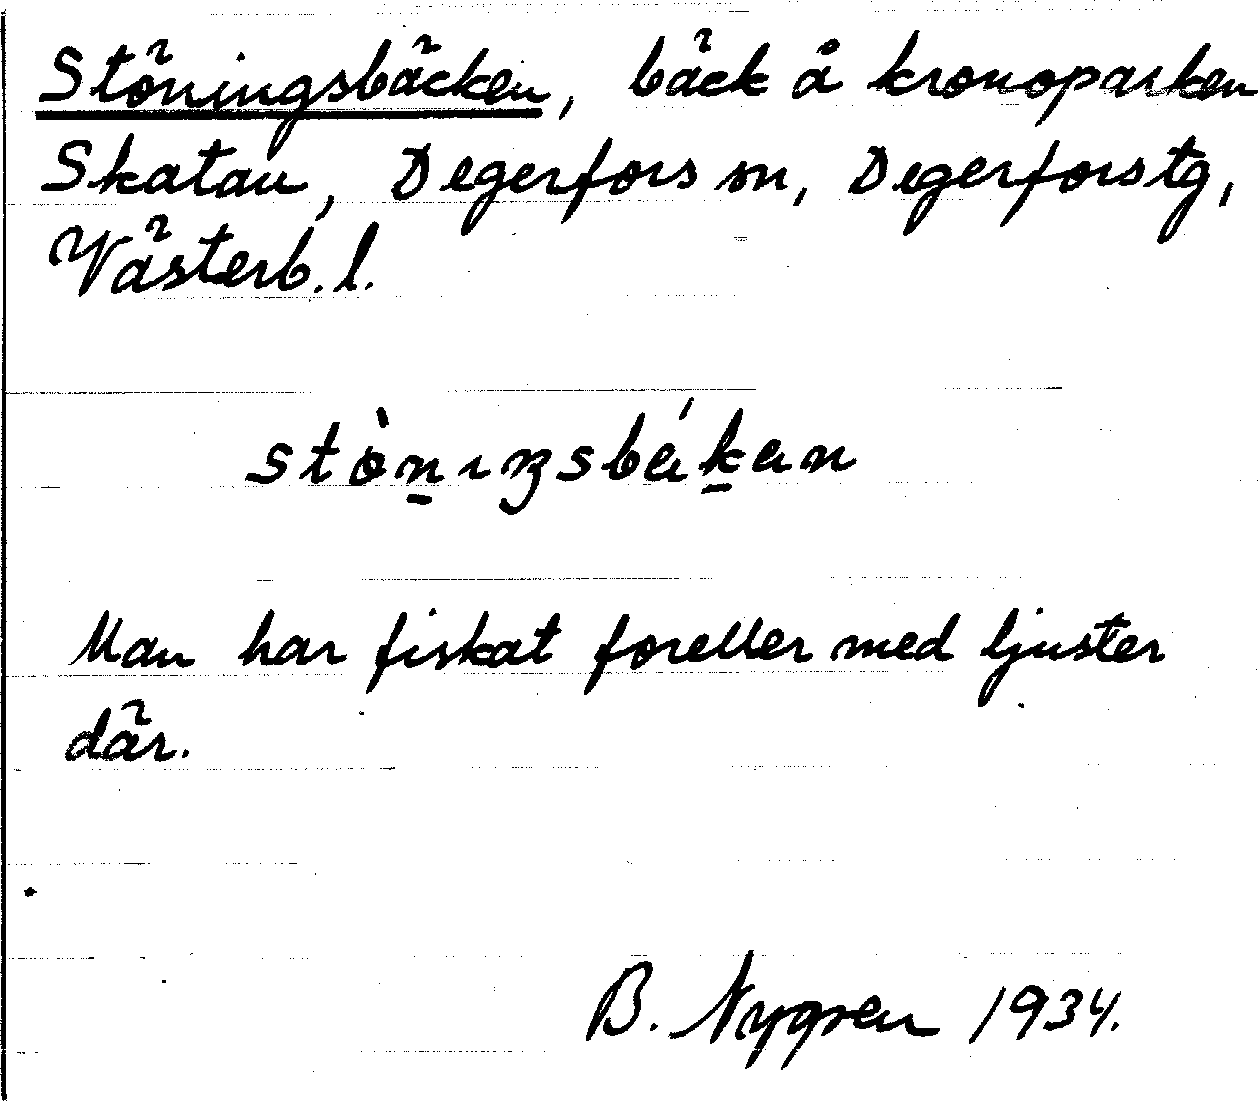 Stöningsbäcken, bäck å kronoparken
Skatan, Degerfors sn, Degerfors tg,
Västerb. l.
stò̱nıŋsbáḵen
Man har fiskat foreller med ljuster
där.
B. Nygren 1934.